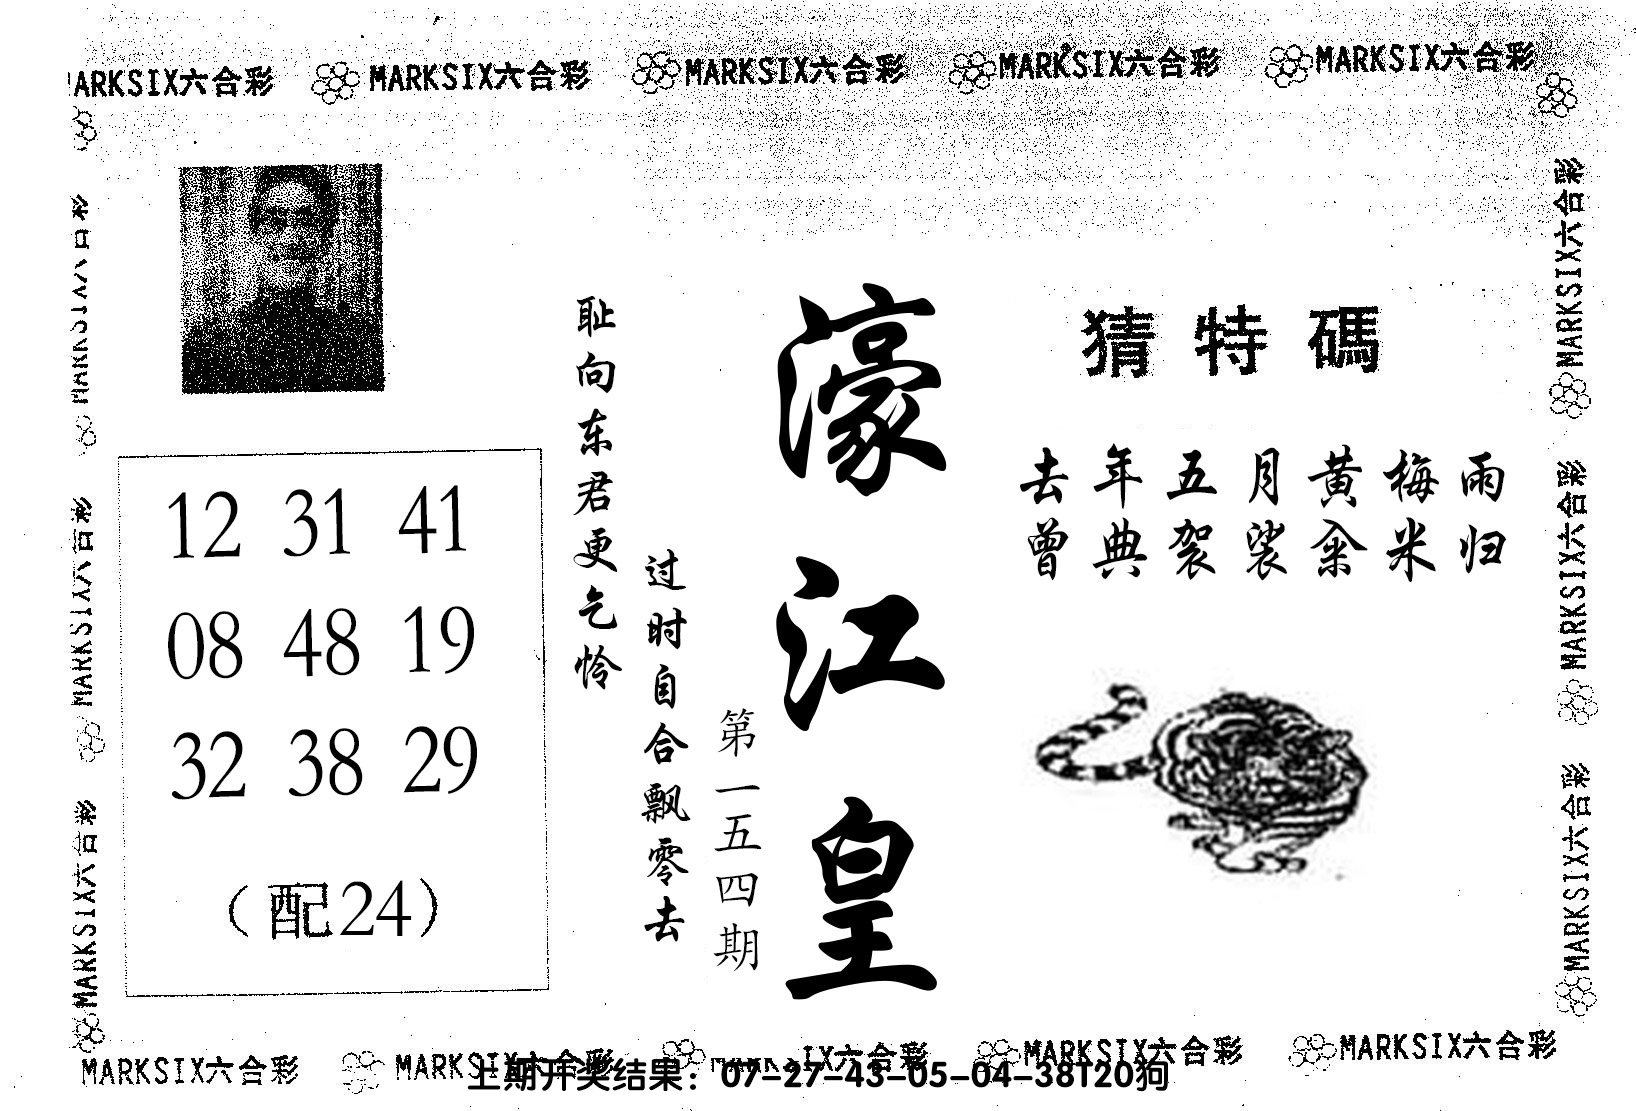 MARKSIX六合彩 MARKSIX六合彩 MARKSIX六合彩 MARKSIX六合彩 MARKSIX六合彩
猜特碼
去年五月黄梅雨
曾典袈裟籴米归
濠江皇
第一五四期
过时自合飘零去
耻向东君更乞怜
12 31 41
08 48 19
32 38 29
（配24）
MARKSIX六合彩
MARKSIX六合彩
MARKSIX六合彩
MARKSIX六合彩
MARKSIX六合彩
MARKSIX六合彩
MARKSIX六合彩 MARKSIX六合彩 MARKSIX六合彩 MARKSIX六合彩
上期开奖结果：07-27-43-05-04-38T20狗